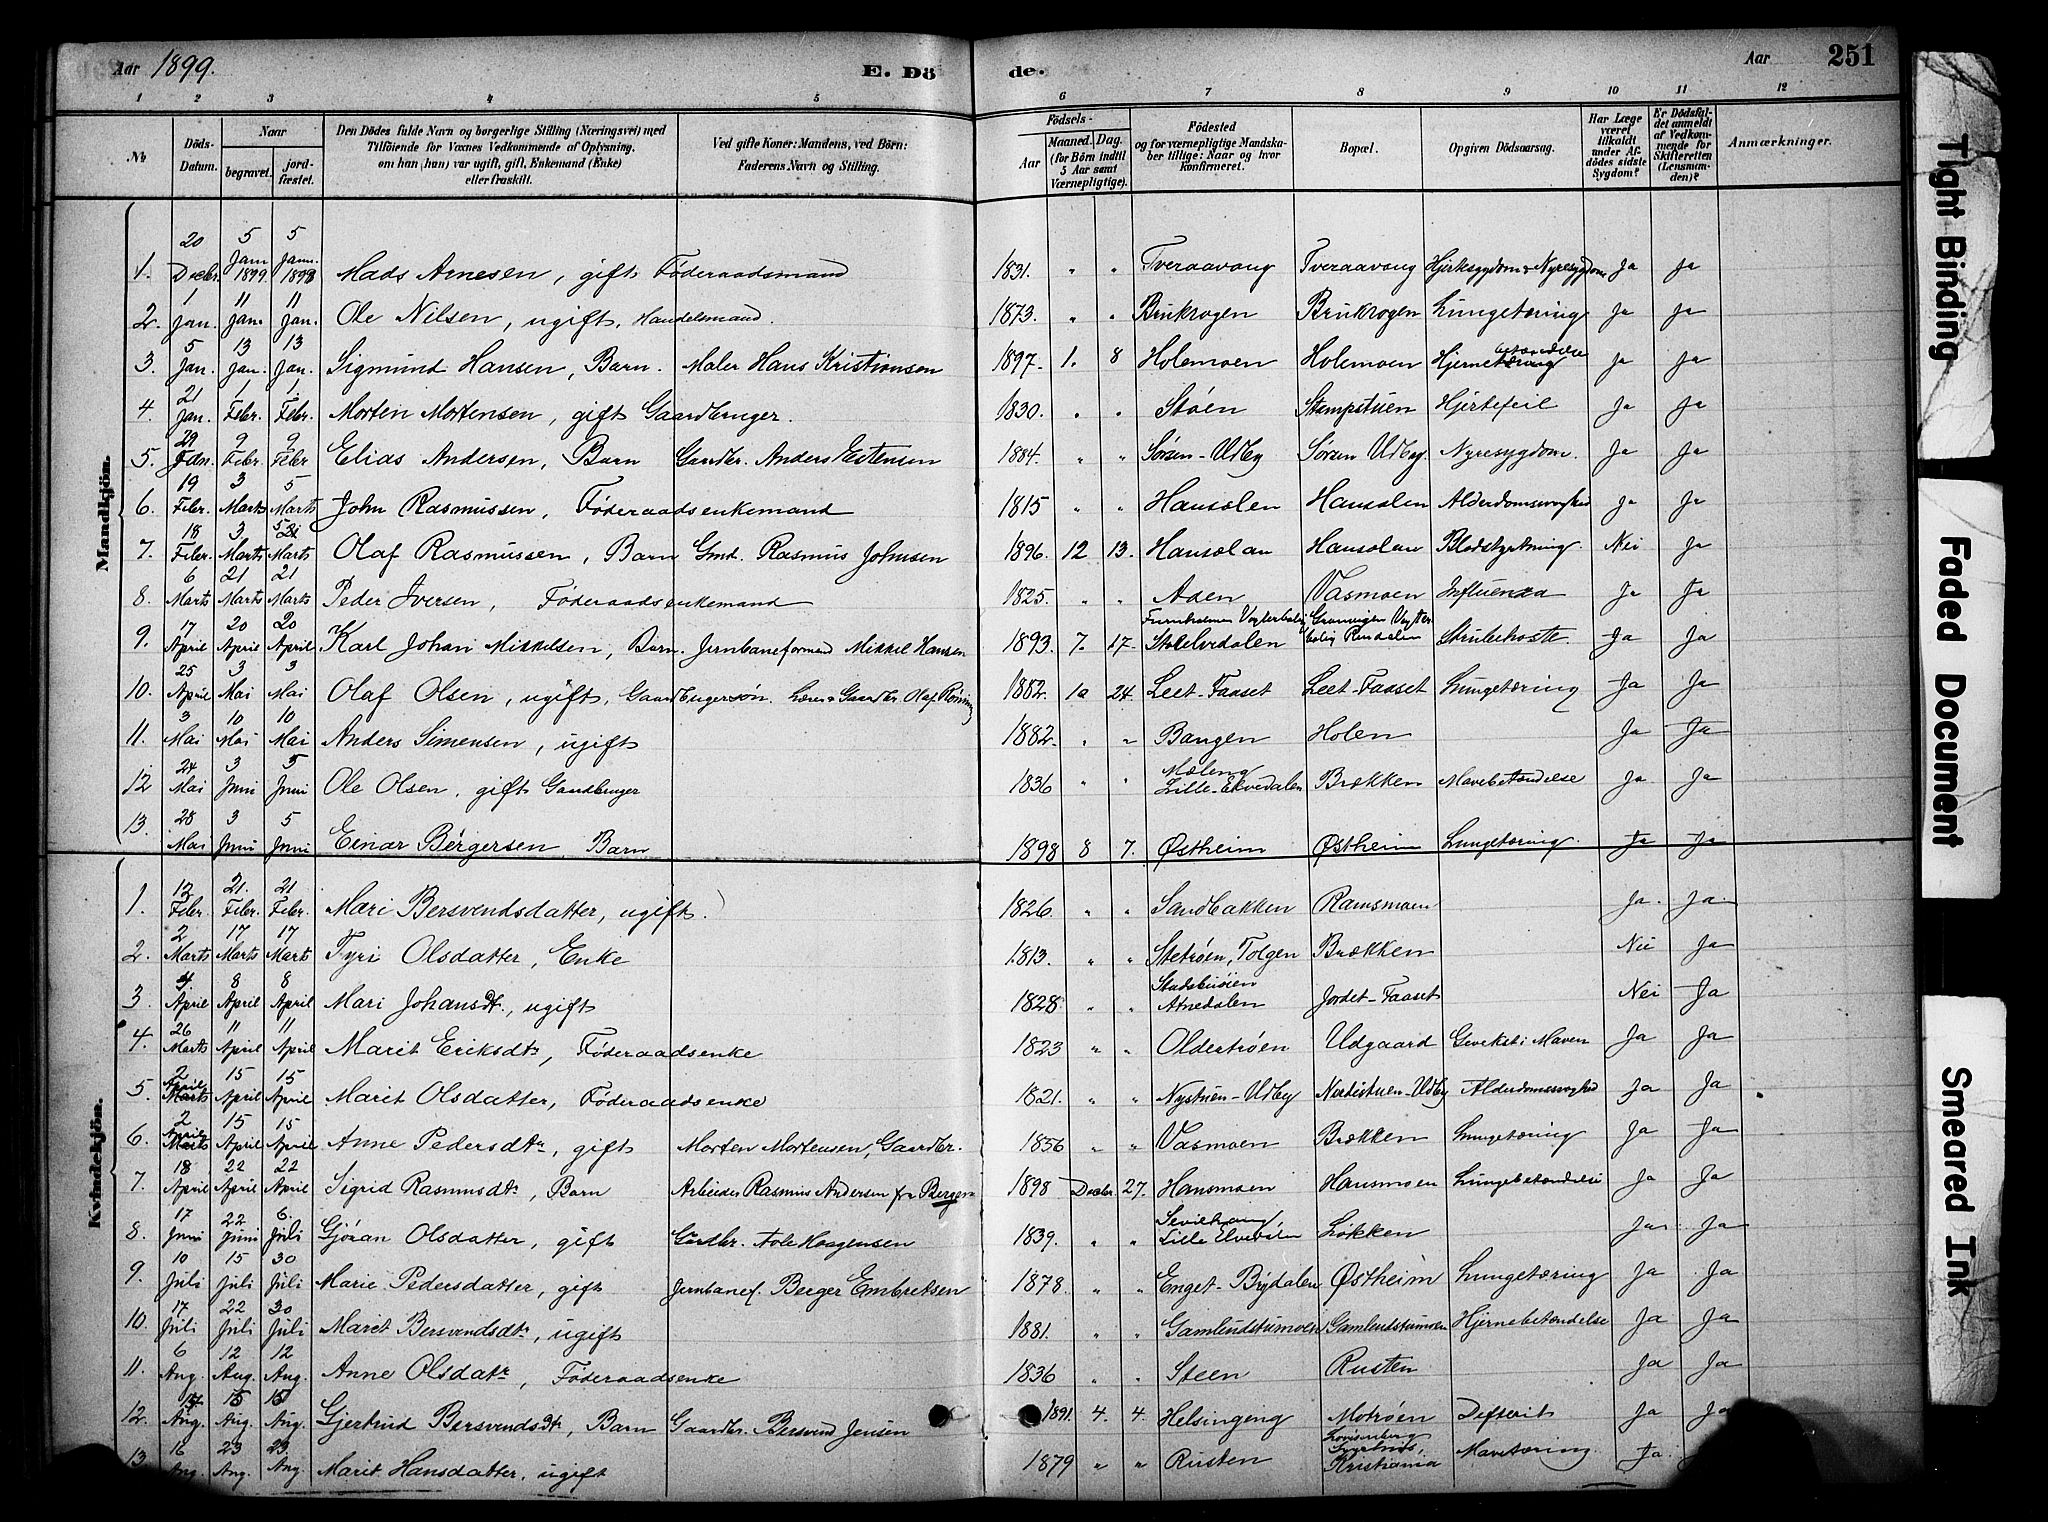 Aar 1899. E. Dö de. Aar 251
1 2 3 4 5 6 7 8 9 10 11 12
No
Döds-Datum.
Naar
begravet.
jordfæstet.
Den Dödes fulde Navn og borgerlige Stilling (Næringsvei) med Tilföiende for Voxnes Vedkommende af Oplysning, om han (hun) var ugift, gift, Enkemand (Enke) eller fraskilt.
Ved gifte Koner: Mandens, ved Börn: Faderens Navn og Stilling.
Födsels-
Aar
Maaned. Dag.
(for Börn indtil 5 Aar samt Værnepligtige).
Födested og for værnepligtige Mandskaber tillige: Naar og hvor konfirmeret.
Bopæl.
Opgiven Dödsaarsag.
Har Læge været tilkaldt under Afdödes sidste Sygdom?
Er Dödsfaldet anmeldt af Vedkommende for Skifteretten (Lensmanden)?
Anmærkninger.
Mandkjön.
1. 20 Decbr. 5 Jan 1899 5 Jan. 1899 Mads Arnesen, gift Føderaadsmand 1831. " " Tveraavang Tveraavang Hjertesygdom & Nyresygdom Ja Ja
2. 1 Jan. 11 Jan. 11 Jan. Ole Nilsen, ugift, Handelsmand. 1873. " " Brukrogen Brukrogen Lungetæring Ja Ja
3. 5 Jan. 13 Jan. 13 Jan. Sigmund Hansen, Barn. Maler Hans Kristiansen 1897. 1. 8 Holemoen Holemoen Hjernebetændelse Ja Ja
4. 21 Jan. 1 Febr. 1 Febr. Morten Mortensen, gift Gaardbruger. 1830. " " Støen Stampstuen Hjertefeil Ja Ja
5. 29 9 Febr. 9 Febr Elias Andersen, Barn Gaardbr. Anders Estensen 1884. " " Sørsen-Udby Sørsen Udby. Nyresygdom. Ja Ja
6. 19 Febr. 3 Marts 5 Marts John Rasmussen, Føderaadsenkemand 1815 " " Hansolen Hansolen Alderdomssvaghed Ja Ja
7. 18 Febr. 3 Marts 5 Marts Olaf Rasmussen, Barn Gmd. Rasmus Johnsen 1896. 12 13. Hansolen Hansolen Blodstyrtning. Nei Ja
8. 6 Marts 21 Marts 21 Marts Peder Iversen, Føderaadsenkemand 1825. " " Aden Vasmoen Influenza Ja Ja
9. 17 April 20 April 20 April Karl Johan Mikkelsen, Barn. Jernbaneformand Mikkel Hansen 1893. 7. 17. Furuholmen Vogterbolig Storelvedalen Granvigen Vogterbolig Rendalen Strubehoste Ja Ja
10. 25 April 3 Mai 3 Mai Olaf Olsen, ugift, Gaardbrugersøn. Lærer & Gaardbr. Olaf Røning 1882. 10 24. Leet-Faaset Leet-Faaset Lungetæring Ja Ja
11. 3 Mai 10 Mai 10 Mai Anders Simensen, ugift 1882. " " Bangen Holen Ja Ja
12 24 Mai 3 Juni 5 Juni Ole Olsen, gift Gaardbruger 1836 " " Mæleng Lille-Elvedalen Brækken Mavebetændelse Ja Ja
13. 28 Mai 3 Juni 5 Juni Einar Bergersen, Barn 1898 8 7. Østheim Østheim Lungetæring. Ja Ja
Kvindekjön.
1. 12 Febr. 21. Febr. 21 Febr. Mari Bersvendsdatter, ugift. 1826. " " Sandbakken Ramsmoen Ja. Ja
2. 2 Marts 17 Marts 17 Marts Tyri Olsdatter, Enke 1813. " " Stetrøen, Tolgen Brækken Nei Ja
3 4 April 8 April 8 April Mari Johansdt., ugift 1828 " " Stadsbuøien Atnedalen Jordet-Faaset Nei Ja
4. 26 Marts 11 April 11 April Marit Eriksdtr, Føderaadsenke 1823 " " Oldertrøen Udgaard Gevekst i Maven Ja Ja
5. 2 April 15 April 15 April Marit Olsdatter, Føderaadsenke 1821. " " Nystuen-Udby Nordistuen-Udby Alderdomssvaghed Ja Ja
6. 2 April 15 April 15 April Anne Pedersdtr, gift Morten Mortensen, Gaardbr. 1856 " " Vasmoen Brækken Lungetæring Ja Ja
7. 18 April 22 April 22 April Sigrid Rasmusdtr, Barn Arbeider Rasmus Andersen fra Bergen 1898 Decbr. 27. Hansmoen Hansmoen Lungebetændelse Ja Ja
8. 17 Juni 22 Juni 6. Juli Gjøran Olsdatter, gift Gaardbr. Aole Haagensen 1839. " " Lille Elvedalen Løkken Ja Ja
9. 10 Juli 15 Juli 30 Juli Marie Pedersdatter, gift Jernbanef. Berger Embretsen 1878. " " Enget-Brydalen Østheim Lungetæring Ja Ja
10. 17 Juli 22 Juli 30 Juli Marit Bersvendsdtr, ugift 1881. " " Gamludstumoen Gamludstumoen Hjernebetændelse Ja Ja
11. 6 Aug. 12 Aug. 12 Aug. Anne Olsdatr, Føderaadsenke 1836 " " Steen Rusten Ja Ja
12. Aug. 15 Aug. 15 Aug. Gjertrud Bersvendsdt, Barn Gaardbr. Bersvend Jensen 1891. 4. 4. Helsingeng Motrøen Defterit Ja Ja
13 16 Aug. 23 Aug. 23. Aug Marit Hansdatter, ugift 1879 " " Rusten Lovisenberg Sygehus, Kristiania Mavetæring. Ja Ja
Tight Binding
Faded Document
Smeared Ink